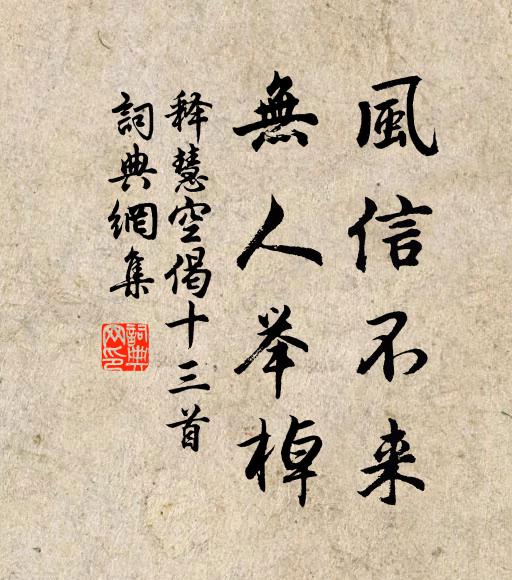 風信不来
無人举棹
释慧空偈十三首
詞典網集
詞典
网印